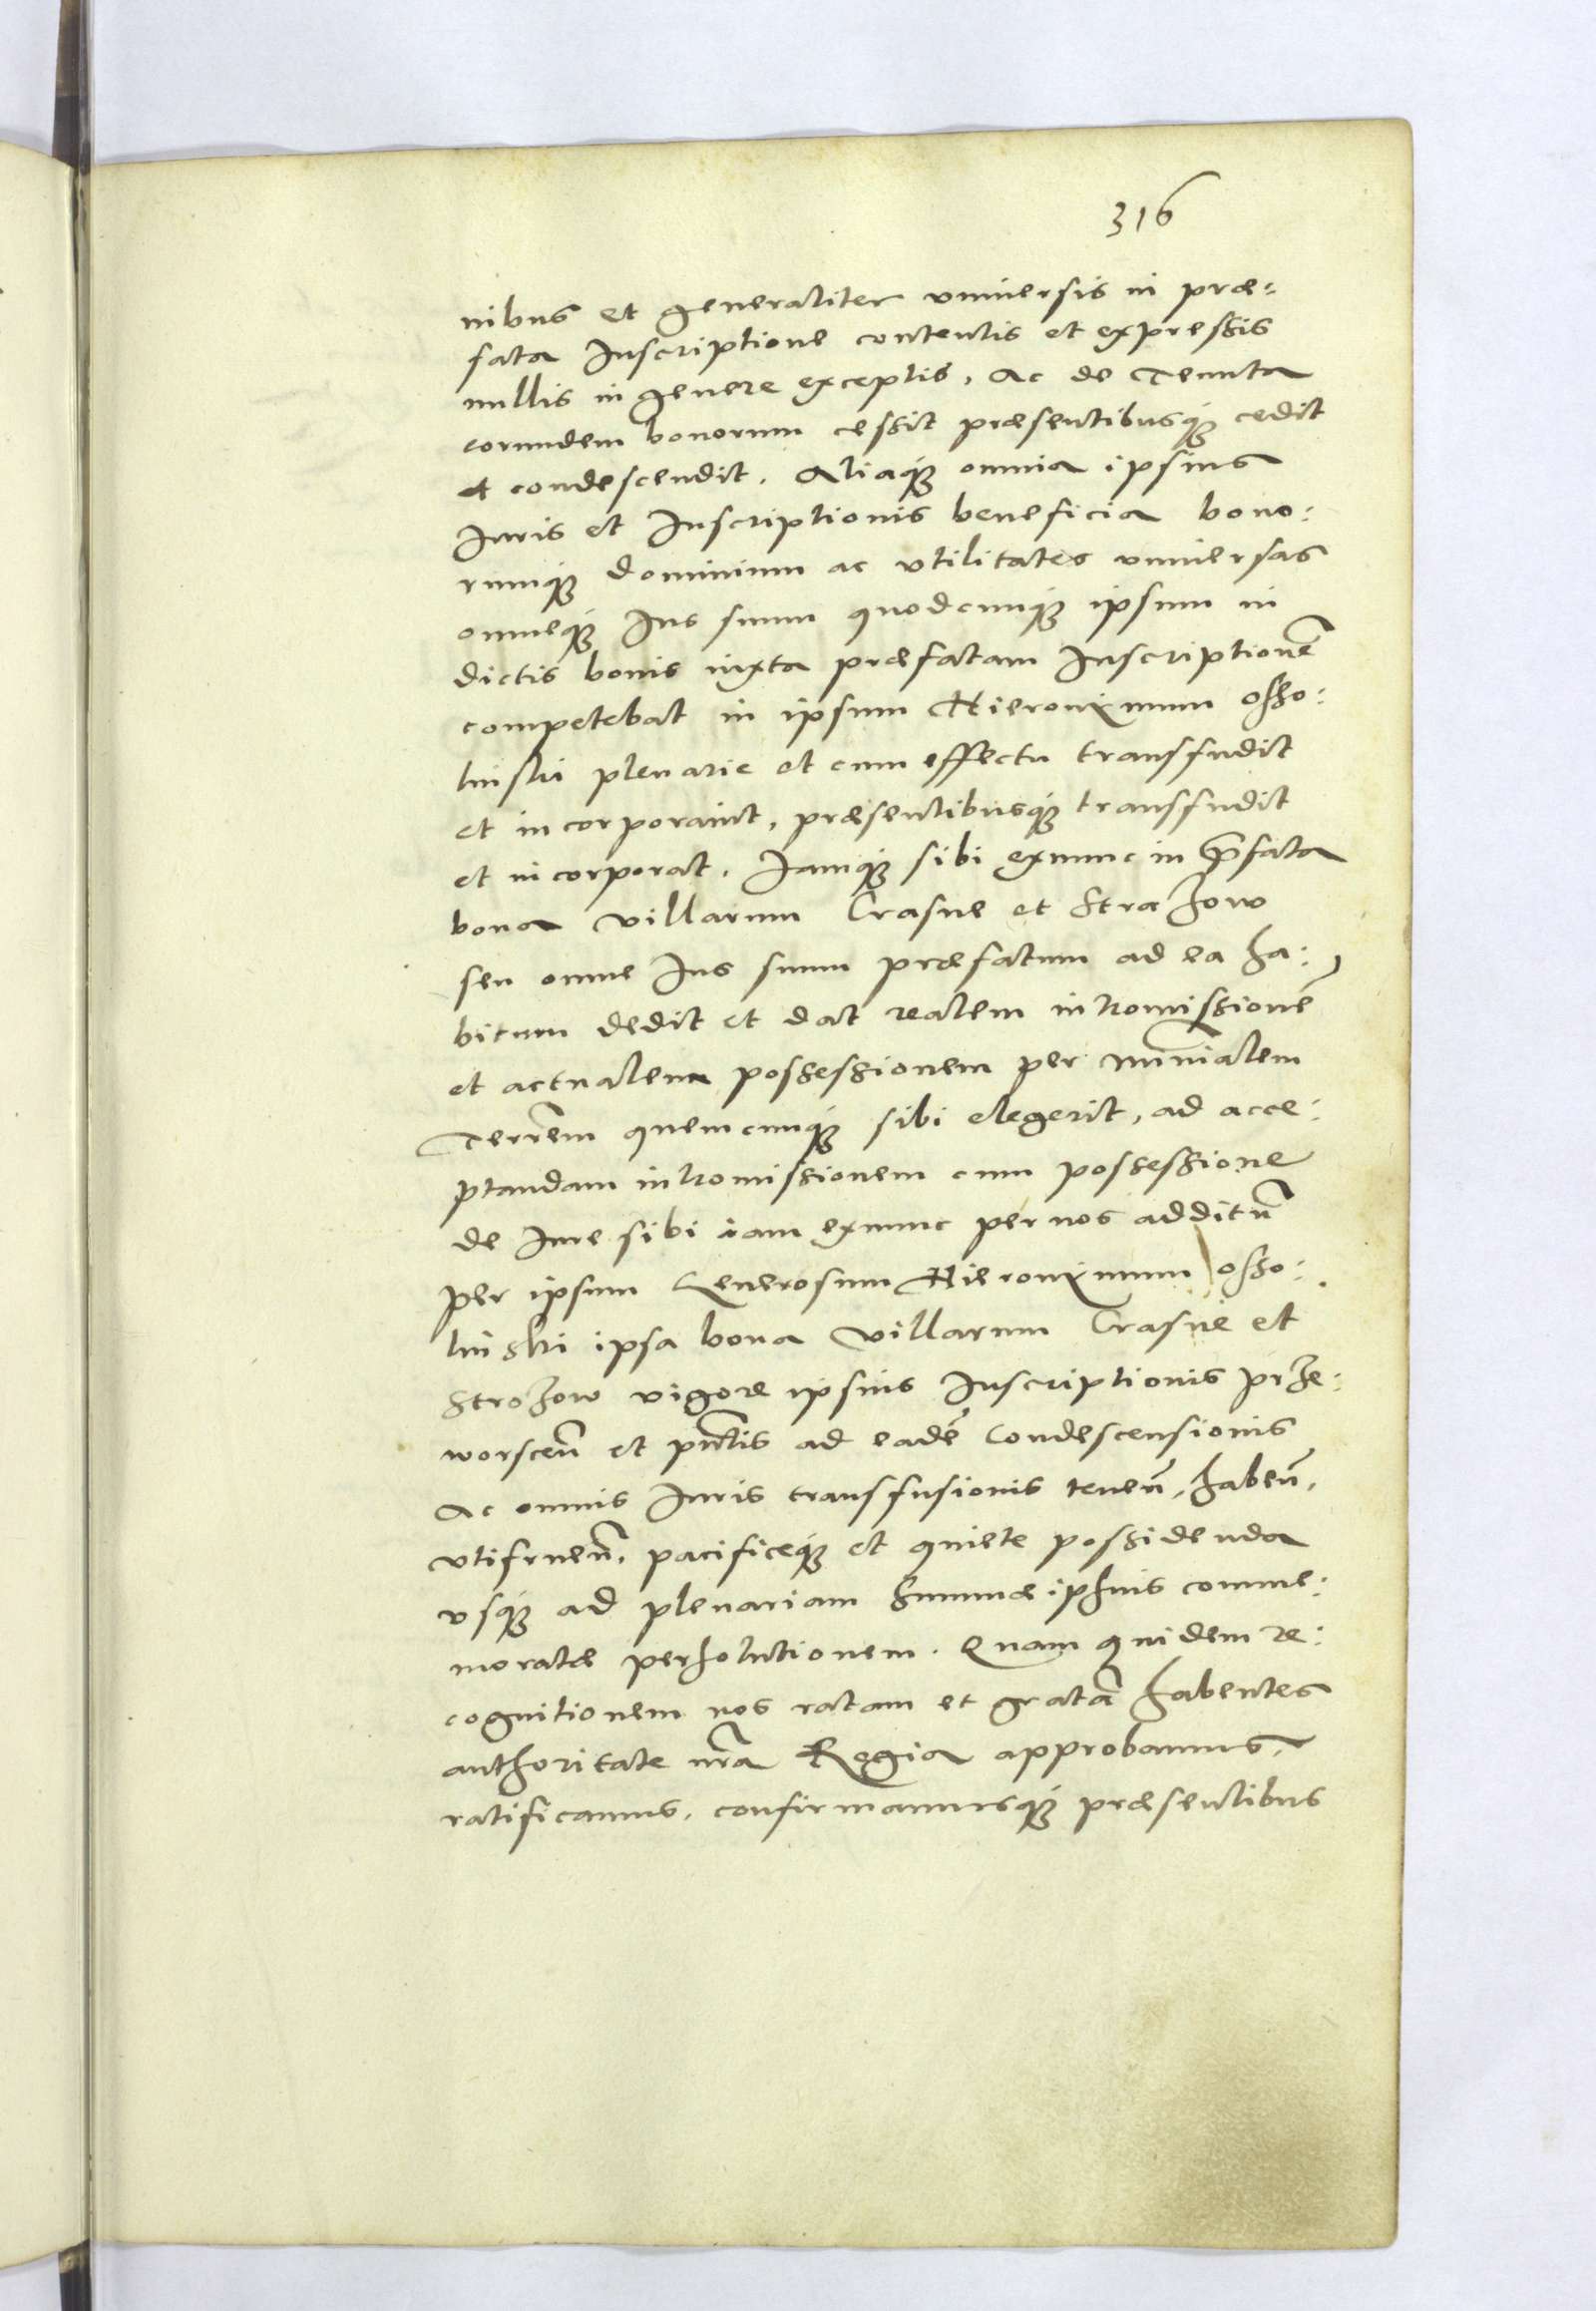 316
nibus et generaliter vniuersis in præ:
fata Inscriptione contentis et expressis
nullis in genere exceptis, Ac de Tenuta
eorundem bonorum cessit præsentibusq3 cedit
et condescendit. Aliaq3 omnia ipsius
Iuris et Inscriptionis beneficia bono:
rumq3 dominium ac vtilitates vniuersas
omneq3 Ius suum quodcunq3 ipsum in
dictis bonis iuxta præfatam Inscriptionẽ
competebat in ipsum Hieronimum Osso:
linski plenarie et cum effectu transfudit
et incorporauit, præsentibusq3 transfudit
et incorporat. Iamq3 sibi exnunc in p̃fata
bona villarum Crasne et Strazow
seu omne Ius suum præfatum ad ea ha:
bitum dedit et dat realem intromissionẽ
et actualem possessionem per Mĩnialem
Terrẽm quemcunq3 sibi elegerit, ad acce:
ptandam intromissionem cum possessione
de Iure sibi iam exnunc per nos additũ
per ipsum Generosum Hieronimum Osso:
linski ipsa bona villarum Crasne et
Strozow vigore ipsius Inscriptionis Prze:
worsceñ et pñtis ad eadẽ Condescensionis
Ac omnis Iuris transfusionis teneñ, habeñ,
vtifrueñ, pacificeq3 et quiete possidenda
vsq3 ad plenariam summæ ipsius comme:
moratæ persolutionem. Quam quidem re:
cognitionem nos ratam et gratã habentes
authoritate nr̃a Regia approbamus,
ratificamus, confirmamusq3 præsentibus